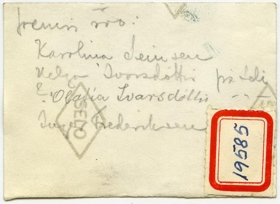 Fremri röð:
Karolína Jensen
Helga Ívarsdóttir
Ólafía Ívarsdóttir
Frederiksen
VELOX
195585